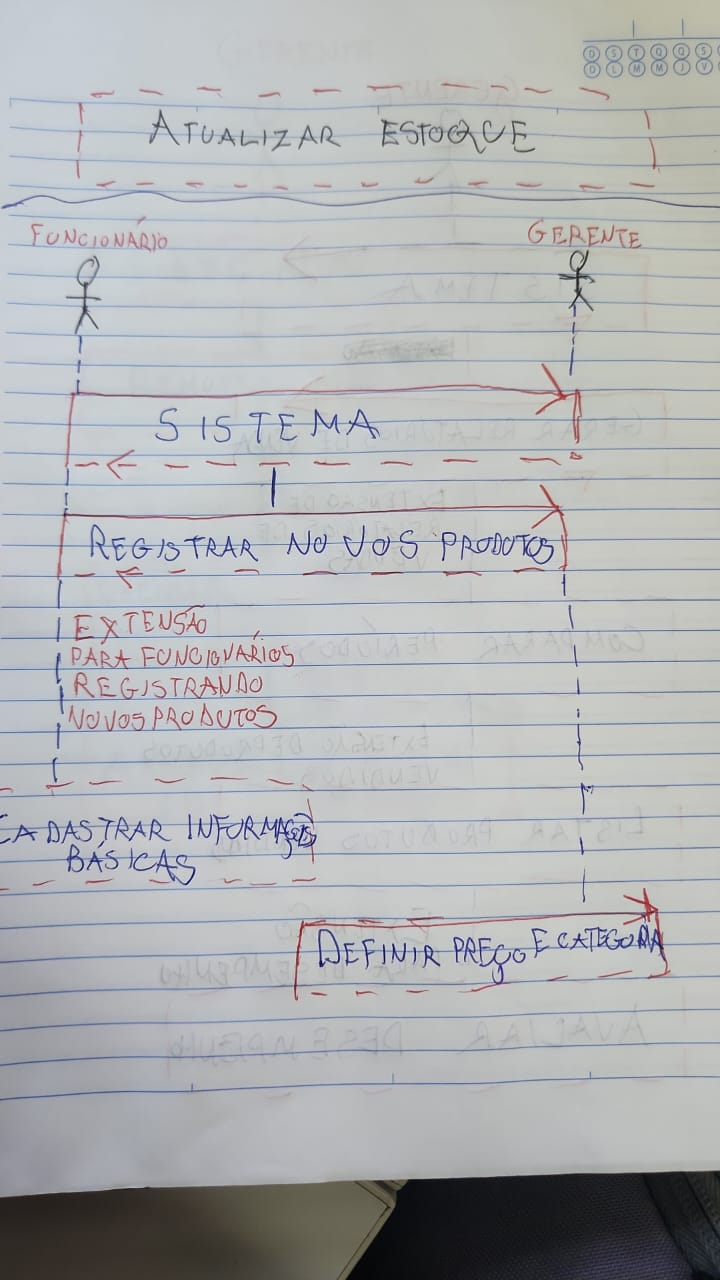 D S T Q Q S
D L M M J V
ATUALIZAR ESTOQUE
FUNCIONÁRIO
GERENTE
SISTEMA
REGISTRAR NOVOS PRODUTOS
EXTENSÃO
PARA FUNCIONÁRIOS
REGISTRANDO
NOVOS PRODUTOS
CADASTRAR INFORMAÇÕES
BÁSICAS
DEFINIR PREÇO E CATEGORIA